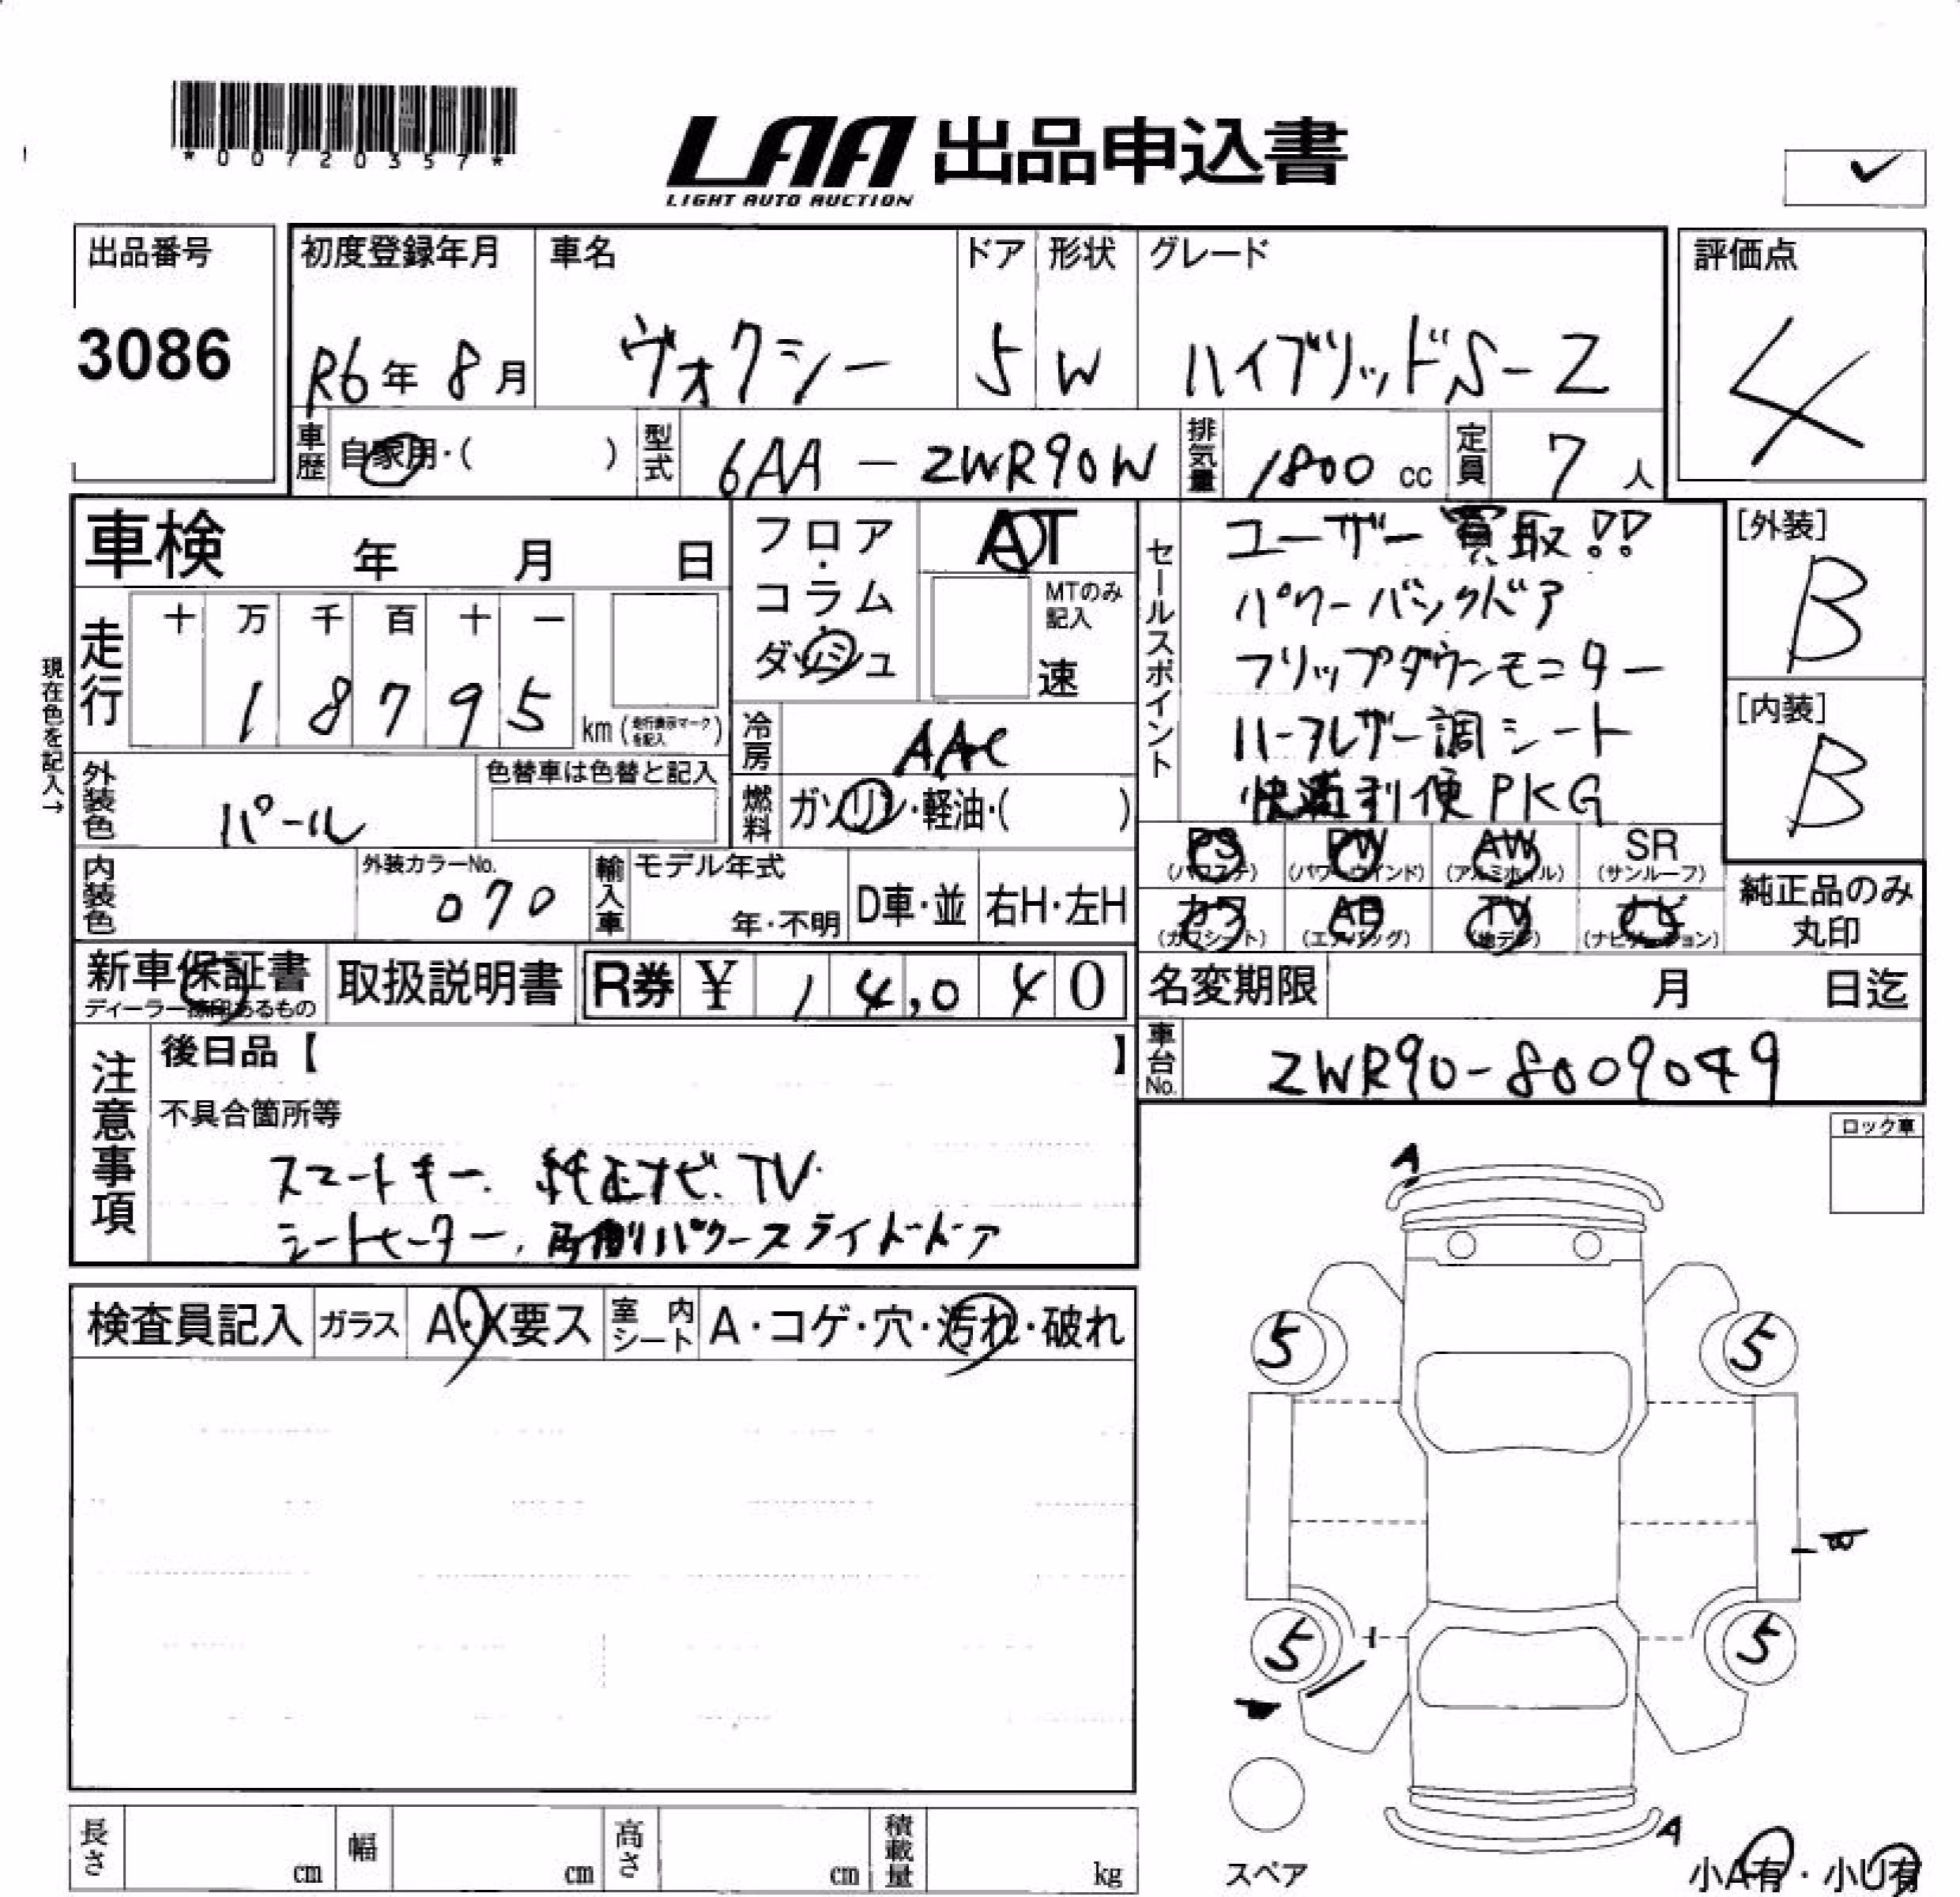 *00720357*
LAA 出品申込書
LIGHT AUTO AUCTION
出品番号
3086
初度登録年月
R6年8月
車名
ヴォクシー
ドア
5
形状
W
グレード
ハイブリッドS-Z
評価点
4
車歴 自家用・( )
型式 6AA-ZWR90W
排気量 1800 cc
定員 7人
車検 年 月 日
フロア・コラム・ダッシュ
AT
MTのみ記入
速
セールスポイント
ユーザー買取!!
パワーバックドア
フリップダウンモニター
ハーフレザー調シート
快適利便PKG
[外装]
B
[内装]
B
現在色を記入→
走行
十 万 千 百 十 一
1 8 7 9 5
km(走行表示マークを記入)
冷房 AAC
外装色 パール
色替車は色替と記入
燃料 ガソリン・軽油・( )
内装色
外装カラーNo.
070
輸入車
モデル年式
年・不明
D車・並
右H・左H
PS
(パワステ)
PW
(パワーウインド)
AW
(アルミホイル)
SR
(サンルーフ)
カワ
(カワシート)
AB
(エアバッグ)
TV
(地デジ)
ナビ
(ナビゲーション)
純正品のみ
丸印
新車保証書
ディーラー捺印あるもの
取扱説明書
R券 ¥ 14,040
名変期限 月 日迄
車台No. ZWR90-8009049
注意事項
後日品【 】
不具合箇所等
スマートキー. 純正ナビ. TV.
シートヒーター, 両側パワースライドドア
ロック車
検査員記入
ガラス
A・X要ス
室内シート
A・コゲ・穴・汚れ・破れ
A
5
5
5
5
A
スペア
小A有・小U有
長さ cm
幅 cm
高さ cm
積載量 kg